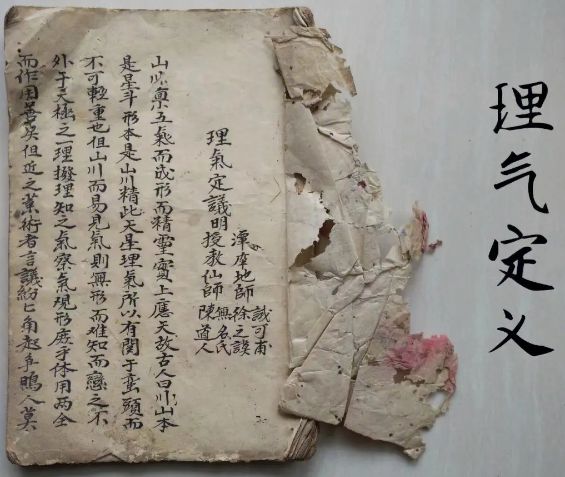 理气定义
理氣定議明
地師
誠可甫
徐之謨
授教仙師
無名氏
陳道人
山川稟五氣而成形而精靈實上應天故古人曰川山本
是星斗形本是山川精此天星理氣所以有関于巒頭而
不可輕重也但山川而易見氣則無形而难知而戀之不
外于天極之一理撥理知之氣察氣現形庶乎体用两全
而作用善矣但近之業術者言議紛匕角起爭鳴人莫